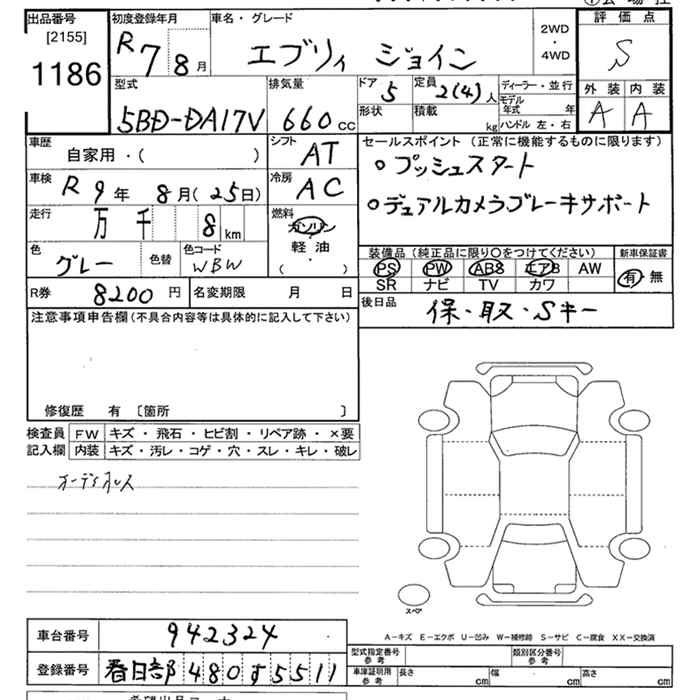 出品番号
[2155]
1186
初度登録年月
R 7 年 8 月
車名・グレード
エブリィ ジョイン
2WD
・
4WD
評価点
S
外装 内装
A A
型式
5BD-DA17V
排気量
660 cc
ドア
5
定員
2(4)人
ディーラー・並行
形状
積載
kg
モデル年式 年
ハンドル 左・右
車歴
自家用・( )
シフト
AT
車検
R 9年 8月(25日)
冷房
AC
走行
万 千 8 km
燃料
ガソリン
軽油
( ・ )
色
グレー
色替
色コード
WBW
R券
8200 円
名変期限 月 日
セールスポイント(正常に機能するものに限ります)
○プッシュスタート
○デュアルカメラブレーキサポート
装備品(純正品に限り○をつけてください)
新車保証書
PS PW ABS エアB AW
SR ナビ TV カワ
有・無
後日品
保・取・Sキー
注意事項申告欄(不具合内容等は具体的に記入して下さい)
修復歴 有 〔箇所 〕
検査員
記入欄
FW キズ・飛石・ヒビ割・リペア跡・×要
内装 キズ・汚レ・コゲ・穴・スレ・キレ・破レ
オーディオレス
スペア
A-キズ E-エクボ U-凹み W-補修跡 S-サビ C-腐食 XX-交換済
車台番号
942324
登録番号
春日部 480 す 5511
型式指定番号
参考
類別区分番号
参考
車庫証明用
参考
長さ cm
幅 cm
高さ cm